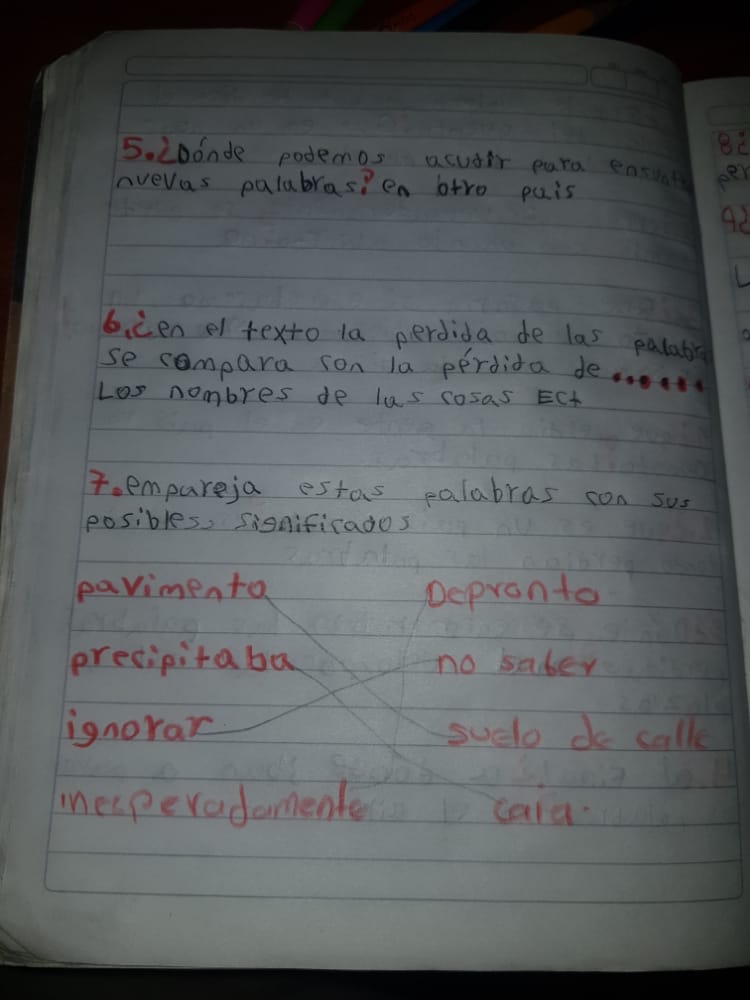 5.¿Dónde podemos acudir para
nuevas palabras? en otro pais
6.¿en el texto la perdida de las palabra
se compara con la pérdida de ......
Los nombres de las cosas Ect
7.empareja estas palabras con sus
posibles significados
pavimento Depronto
precipitaba no saber
ignorar suelo de calle
inecperadamente caia.
8¿
per
9¿